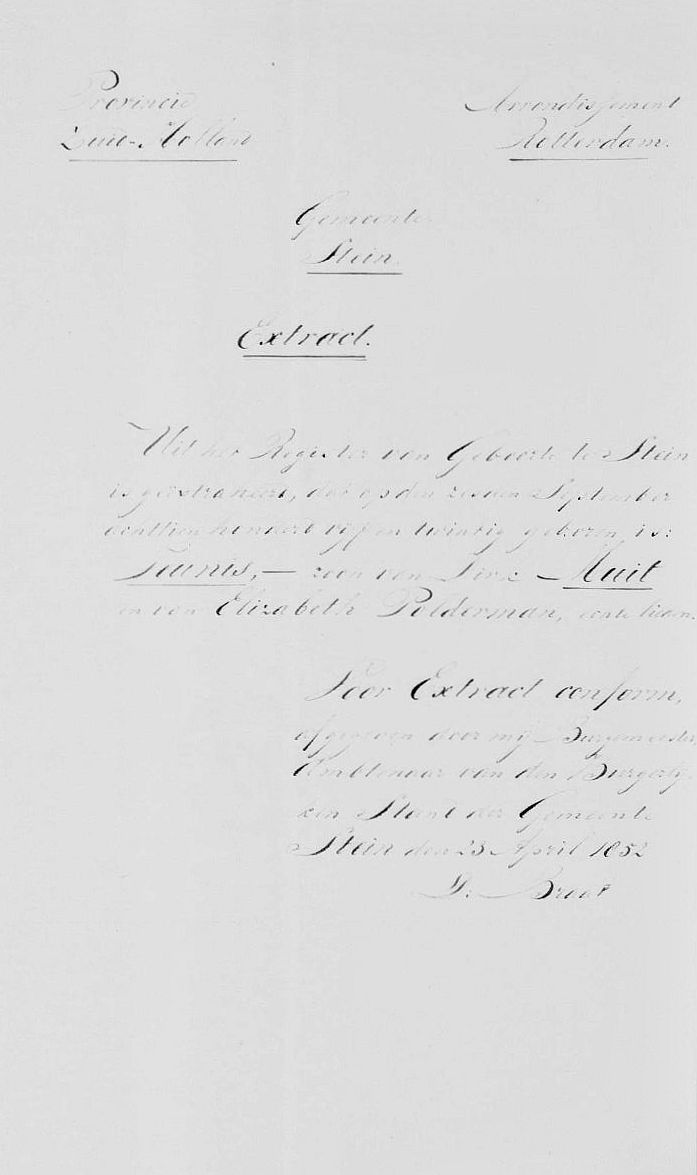 Provincie
Zuid-Holland
Arrondissement
Rotterdam.
Gemeente
Stein.
Extract.
Uit het Register van Geboorte te Stein
is geextraheert, dat op den zesden September
achttien hondert vijf en twintig geboren is:
Teunis, — zoon van Dirk Muit
en van Elizabeth Polderman, echte lieden.
Voor Extract conform,
afgegeven door mij Burgemeester,
Ambtenaar van den Burgerly-
ken Stant der Gemeente
Stein den 23 April 1852